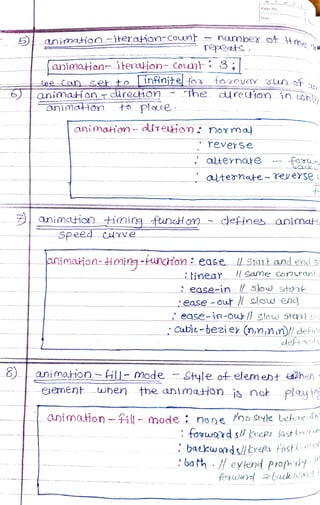 5) animation-iteration-count - number of time
repeats.
animation-iteration-count: 3;
we can set to infinite for forever run of
6) animation-direction - The direction in
animation to place.
animation-direction: normal
: reverse
: alternate -
: alternate-reverse
7) animation timing function - defines animati
speed curve
animation-timing-function: ease // start and end s
: linear // same constant
: ease-in // slow start
: ease-out // slow end
: ease-in-out // slow start
: cubic-bezier (n,n,n,n) // defin
8) animation-fill-mode - style of element when
element when the animation is not playing
animation-fill-mode: none //no style before
: forwards // keeps last
: backwards // keeps first
: both. // extend property
forward backward